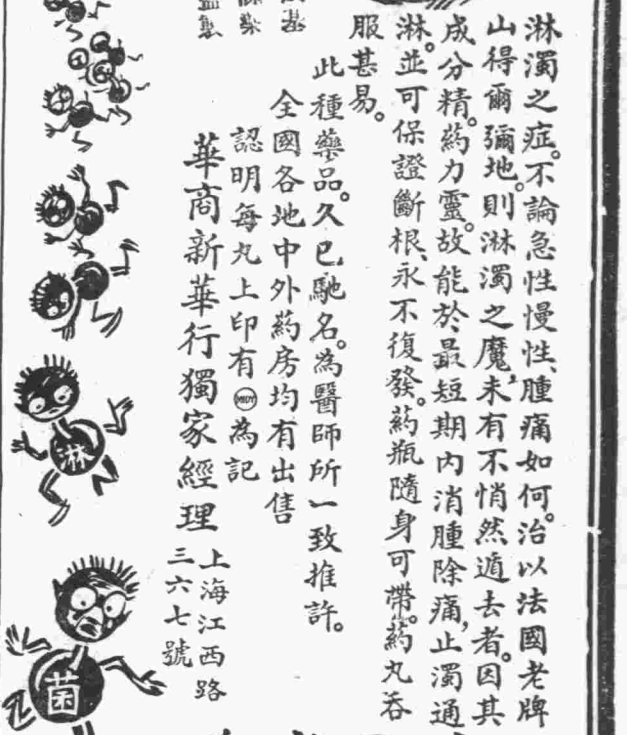 淋濁之症。不論急性慢性、腫痛如何。治以法國老牌
山得爾彌地。則淋濁之魔、未有不悄然遁去者。因其
成分精。葯力靈。故能於最短期內消腫除痛、止濁通
淋。並可保證斷根、永不復發。葯瓶隨身可帶。葯丸吞
服甚易。
此種藥品。久已馳名。為醫師所一致推許。
全國各地中外葯房均有出售
認明每丸上印有MIDY為記
華商新華行獨家經理
上海江西路
三六七號
淋
菌